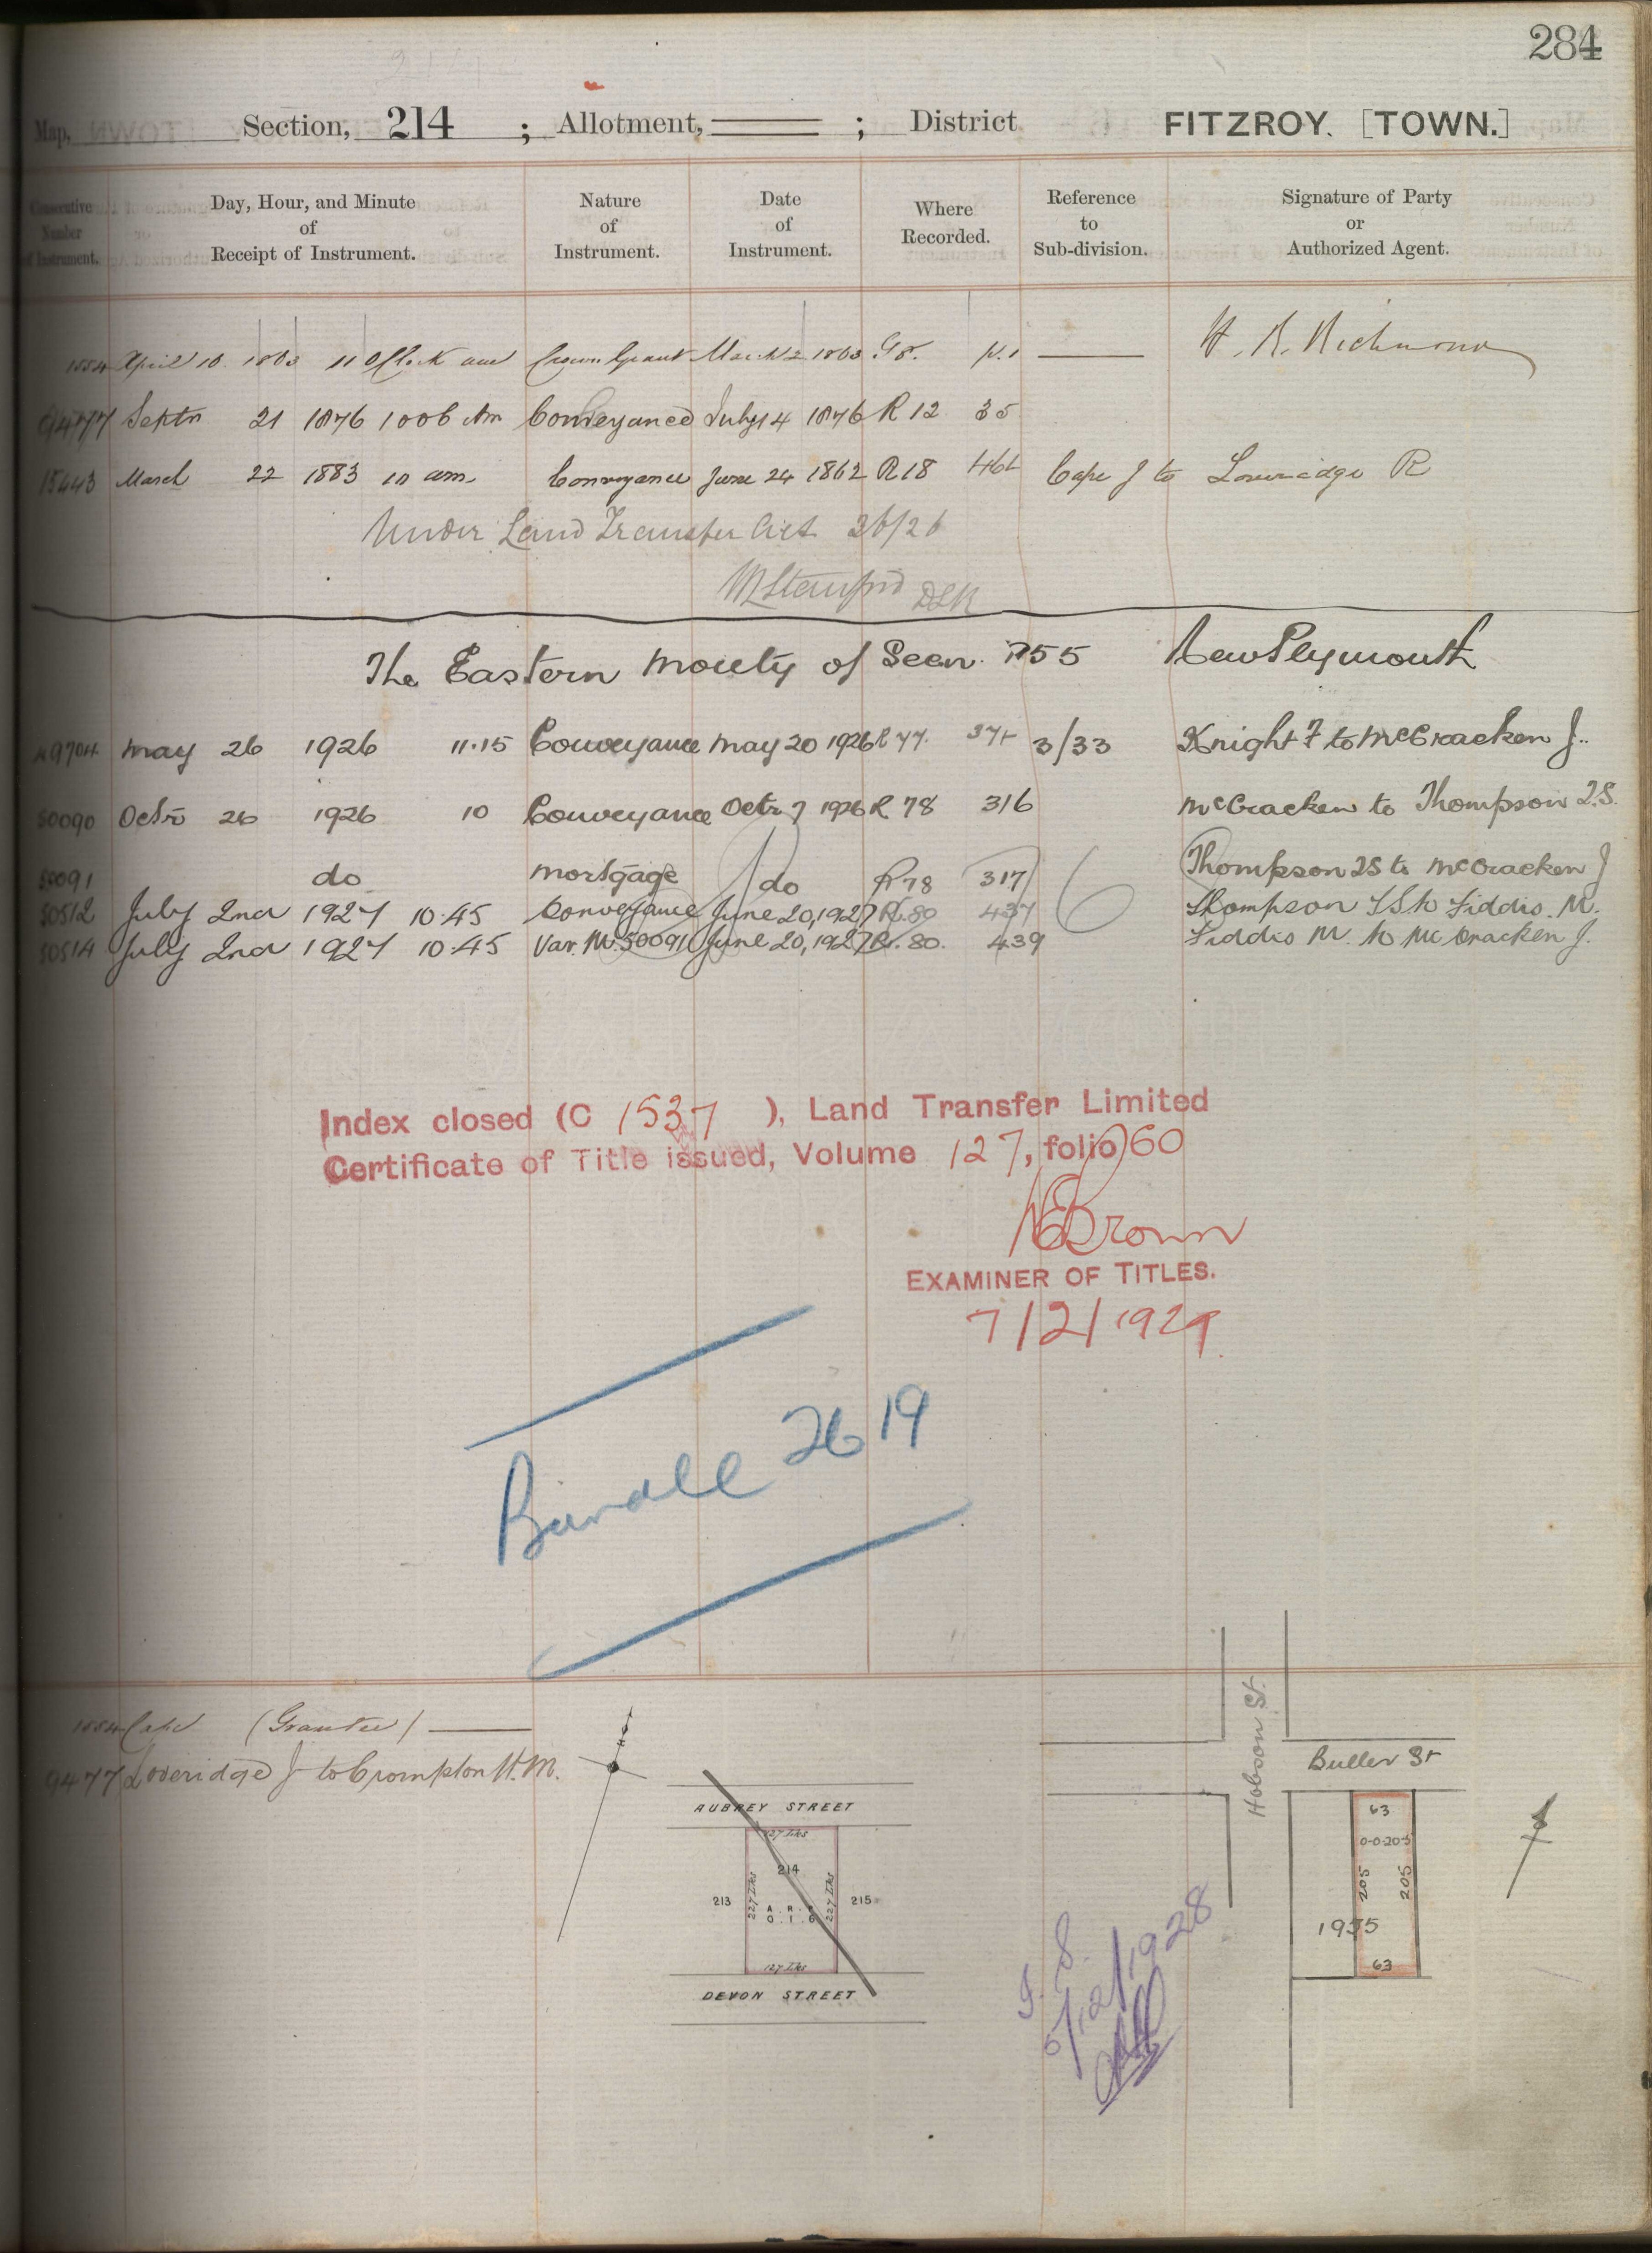 284
Map, Section, 214 ; Allotment, ; District FITZROY. [TOWN.]
Consecutive Number of Instrument.
Day, Hour, and Minute of Receipt of Instrument.
Nature of Instrument.
Date of Instrument.
Where Recorded.
Reference to Sub-division.
Signature of Party or Authorized Agent.
1554 April 10 1863 11 OClock am Crown Grant March 2 1863 G 8. p. 1 H. R. Richmond
9477 Septr 21 1876 10 06 Am Conveyance July 14 1876 R 12 35
15443 March 22 1883 10 am. Conveyance June 24 1862 R 18 Cape J to Loveridge R
Under Land Transfer Act 26/26
DLR
The Eastern Moiety of Secn. 1955 New Plymouth
49704 May 26 1926 11.15 Conveyance May 20 1926 R 77. 3/33 Knight F to McCracken J.
50090 Octr 26 1926 10 Conveyance Octr 7 1926 R 78 316 McCracken to Thompson T.S.
50091 do mortgage do R 78 317 Thompson TS to McCracken J
50512 July 2nd 1927 10.45 Conveyance June 20, 1927 R. 80 437 Thompson TS to Fiddis. M.
50514 July 2nd 1927 10.45 Var. M. 50091 June 20, 1927 R. 80. 439 Fiddis M. to McCracken J.
Index closed (C 1537 ), Land Transfer Limited
Certificate of Title issued, Volume 127, folio 60
Brown
EXAMINER OF TITLES.
7/2/1929.
Bundle 2619
1554 Cape (Grantee)
9477 Loveridge J to Crompton W.M.
AUBREY STREET
127 Lks
214
213
227 Lks
A. R. P.
0. 1. 6
227 Lks
215
127 Lks
DEVON STREET
Hobson St.
Buller St
63
0-0-20.5
205
205
1955
63
5/12/1928